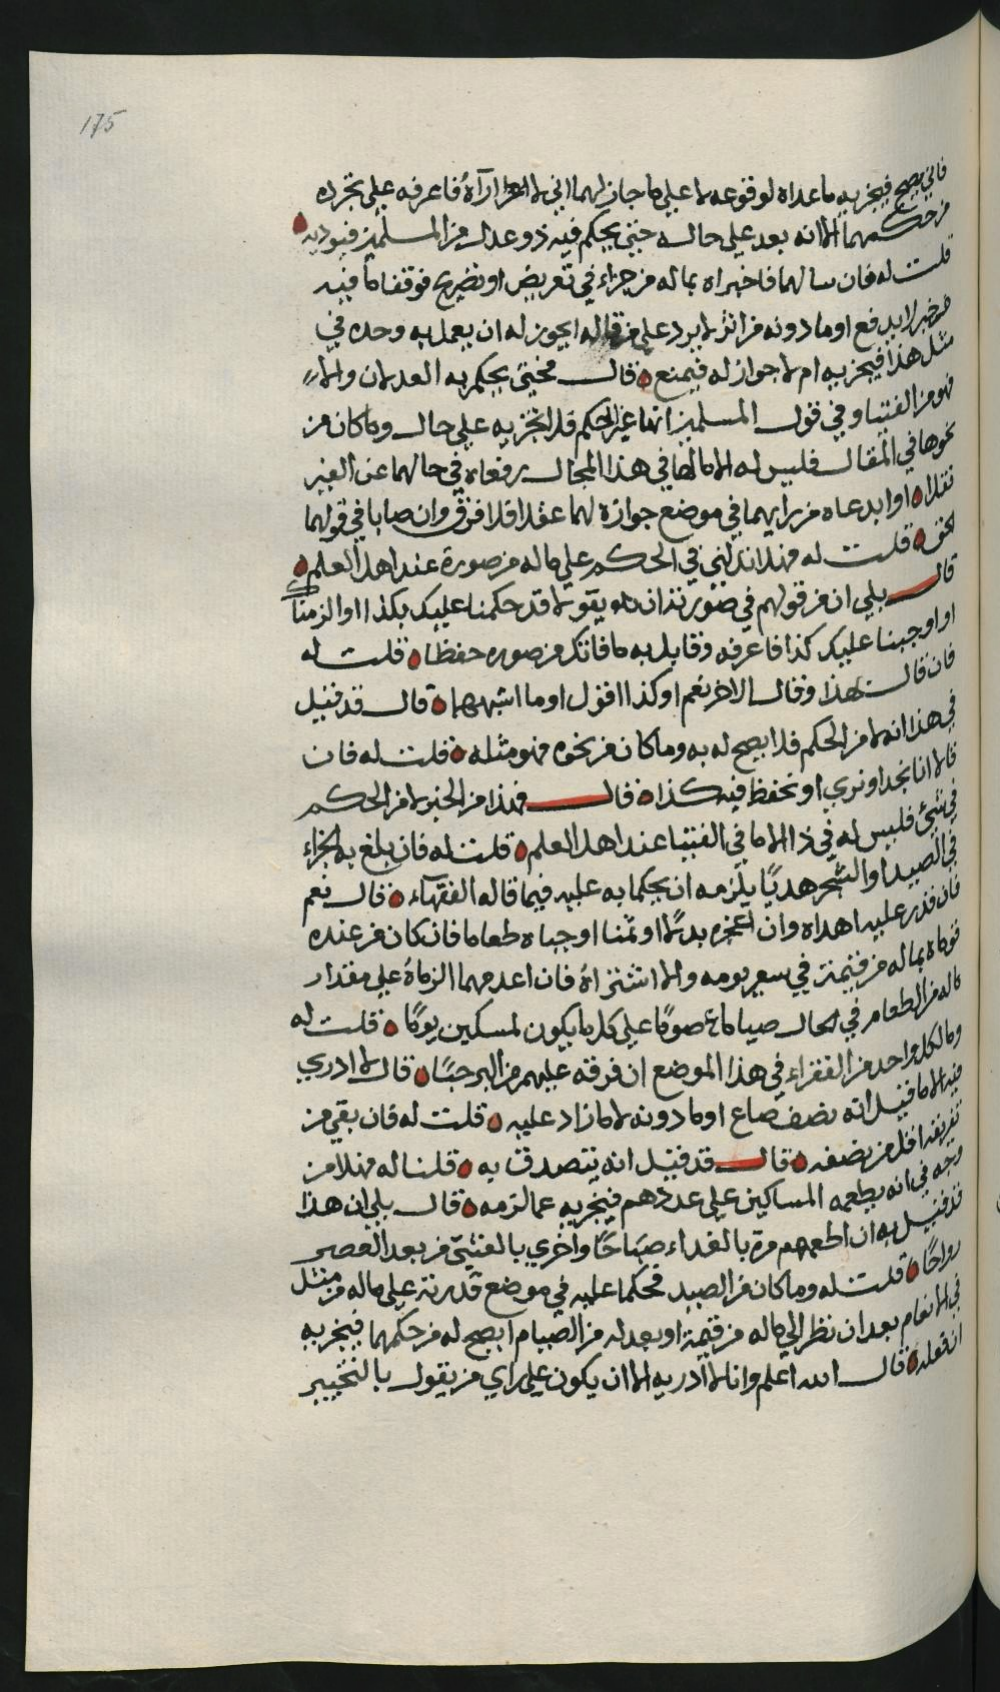 175
فاني يصح فيجزيه ما عداه لوقوعه لا على ما جاز لهما اني لا ارآه فاعرفه على تجرده
من حكمهما الا انه بعد على حاله حتى يحكم فيه ذو عدل من المسلمين فيوديه
قلت له فان سالهما فاخبراه بما له من جزاء في تعريض او تصريح فوقفا ما فيه
من خبر لا يدفع او ما دونه من اثر لا يرد على من قاله ايجوز له ان يعمل به وحده في
مثل هذا فيجزيه ام لا جواز له فيمنع قال فحتى يحكم به العدلان والا
فهو من الفتيا وفي قول المسلمين انها غير الحكم فلا تجزيه على حال وما كان من
نحوها في المقال فليس له الا مالها في هذا المجال رفعاه في حالهما عن الغير
نقلا او ابدعاه من رايهما في موضع جوازه لهما عقلا فلا فرق وان صابا في قولهما
الحق قلت له فهذا دلني في الحكم على ما له من صورة عند اهل العلم
قال بلى ان من قولهم في صورته ان يقولا قد حكمنا عليك بكذا او الزمناك
او اوجبنا عليك كذا فاعرفه وقابل به ما فاتك من صوره حفظا قلت له
فان قال هذا وقال الاخر نعم او كذا اقول او ما اشبهها قال قد قيل
في هذا انه لا من الحكم فلا يصح له به وما كان من نحوه فهو مثله قلت له فان
قالا انا نجد او نروي او نحفظ فيه كذا قال فهذا من الخبر لا من الحكم
في شيء فليس له في ذا الا ما في الفتيا عند اهل العلم قلت له فان بلغ به الجزاء
في الصيد او الشجر هديا يلزمه ان يحكما به عليه فيما قاله الفقهاء قال نعم
فان قدر عليه اهداه وان اعجزه بدلا او ثمنا اوجباه طعاما فان كان من عنده
قوماه بما له من قيمة في سعر يومه والا اشتراه فان اعدمهما الزماه على مقدار
ماله من الطعام في الحال صياما صوما على كل ما يكون لمسكين يوما قلت له
وما لكل واحد من الفقراء في هذا الموضع ان فرقه عليهم من البر حبا قال لا ادري
فيه الا ما قيل انه نصف صاع او ما دونه لا ما زاد عليه قلت له فان بقي من
تفريقه اقل من نصفه قال قد قيل انه يتصدق به قلنا له فهلا من
وجه في انه يطعمه المساكين على عددهم فيجزيه عما لزمه قال بلى ان هذا
قد قيل به ان اطعمهم مرة بالغداء صباحا واخرى بالعشي من بعد العصر
رواحا قلت له وما كان من الصيد فحكما عليه في موضع قدرته على ماله من مثل
في الانعام بعد ان نظر الى ماله من قيمة او بعدله من الصيام ايصح له من حكمهما فيجزيه
ان فعله قال الله اعلم وانا لا ادريه الا ان يكون على راي من يقول بالتخيير